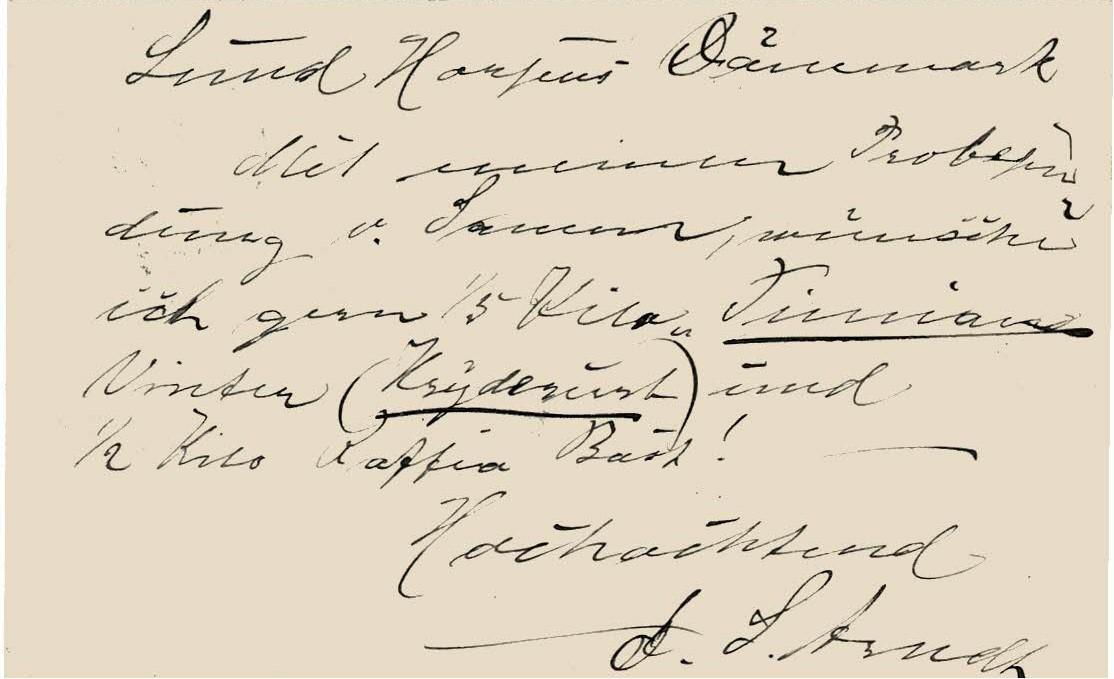 Lund Horsens Dänemark
Mit meiner Probesen
dung v. Samen, wünsche
ich gern 1/5 Kilo „Timian"
Vinter (Kryderurt) und
1/2 Kilo Raffia Bast!
Hochachtend
L. Arndt